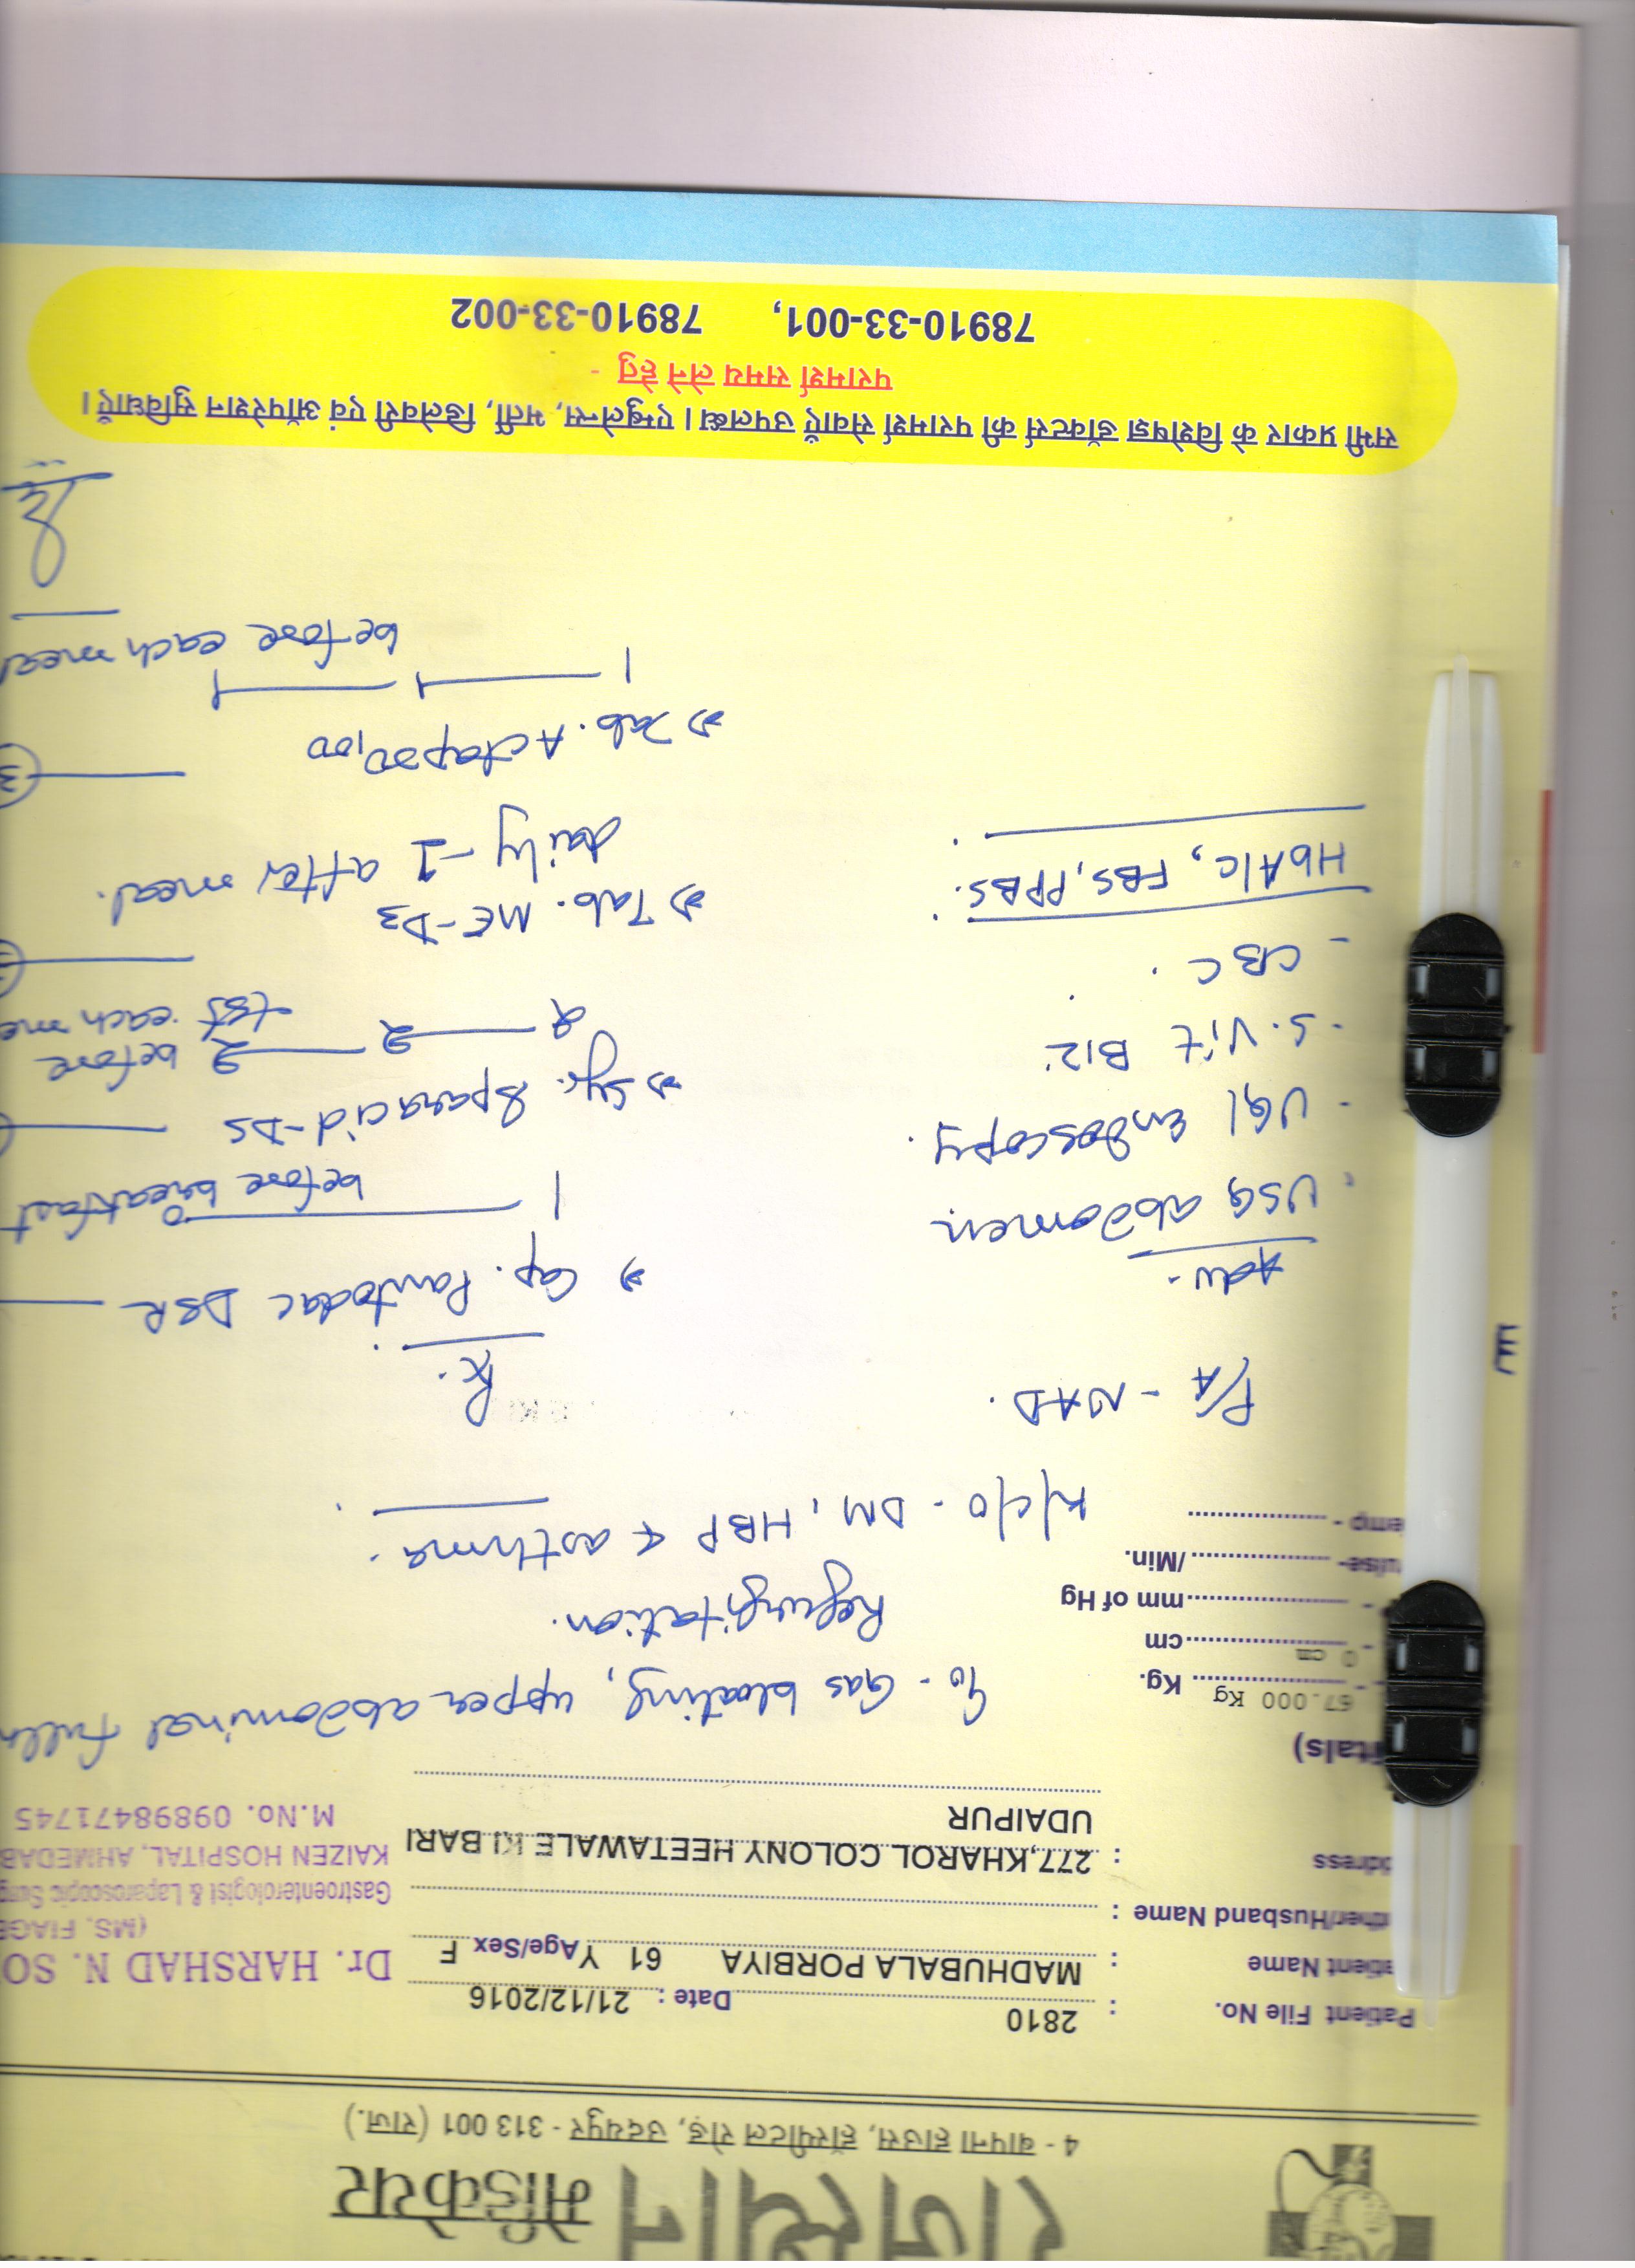 राजस्थान मेडिकेयर
4 - बापना हाउस, हॉस्पीटल रोड़, उदयपुर - 313 001 (राज.)
Patient File No. : 2810 Date : 21/12/2016
atient Name : MADHUBALA PORBIYA 61 Y Age/Sex F
ther/Husband Name :
ddress : 277,KHAROL COLONY HEETAWALE KI BARI
UDAIPUR
Dr. HARSHAD N. SO
(MS. FIAGE
Gastroenterologist & Laparoscopic Surg
KAIZEN HOSPITAL, AHMEDAB
M.No. 09898471745
itals)
67.000 Kg Kg.
0 cm cm
mm of Hg
ulse- /Min.
emp -
C/o - Gas bloating, upper abdominal fulln
Regurgitation.
K/c/o - DM, HBP & asthma.
P/A - NAD.
Adv-
USG abdomen
- UGI Endoscopy.
- S. Vit B12
- CBC.
HbA1c, FBS, PPBS.
Rx.
⇒ Cap. Pantodac DSR
1 before breakfast
⇒ Syr. Sparacid-DS
2 2 2 before
tsf each me
⇒ Tab. ME-D3
daily -1 after meal.
⇒ Tab. Actapro 100
1 1 1
before each meal
सभी प्रकार के विशेषज्ञ डॉक्टर्स की परामर्श सेवाएँ उपलब्ध। एम्बुलेन्स, भर्ती, डिलेवरी एवं ऑपरेशन सुविधाएँ।
परामर्श समय लेने हेतु -
78910-33-001, 78910-33-002